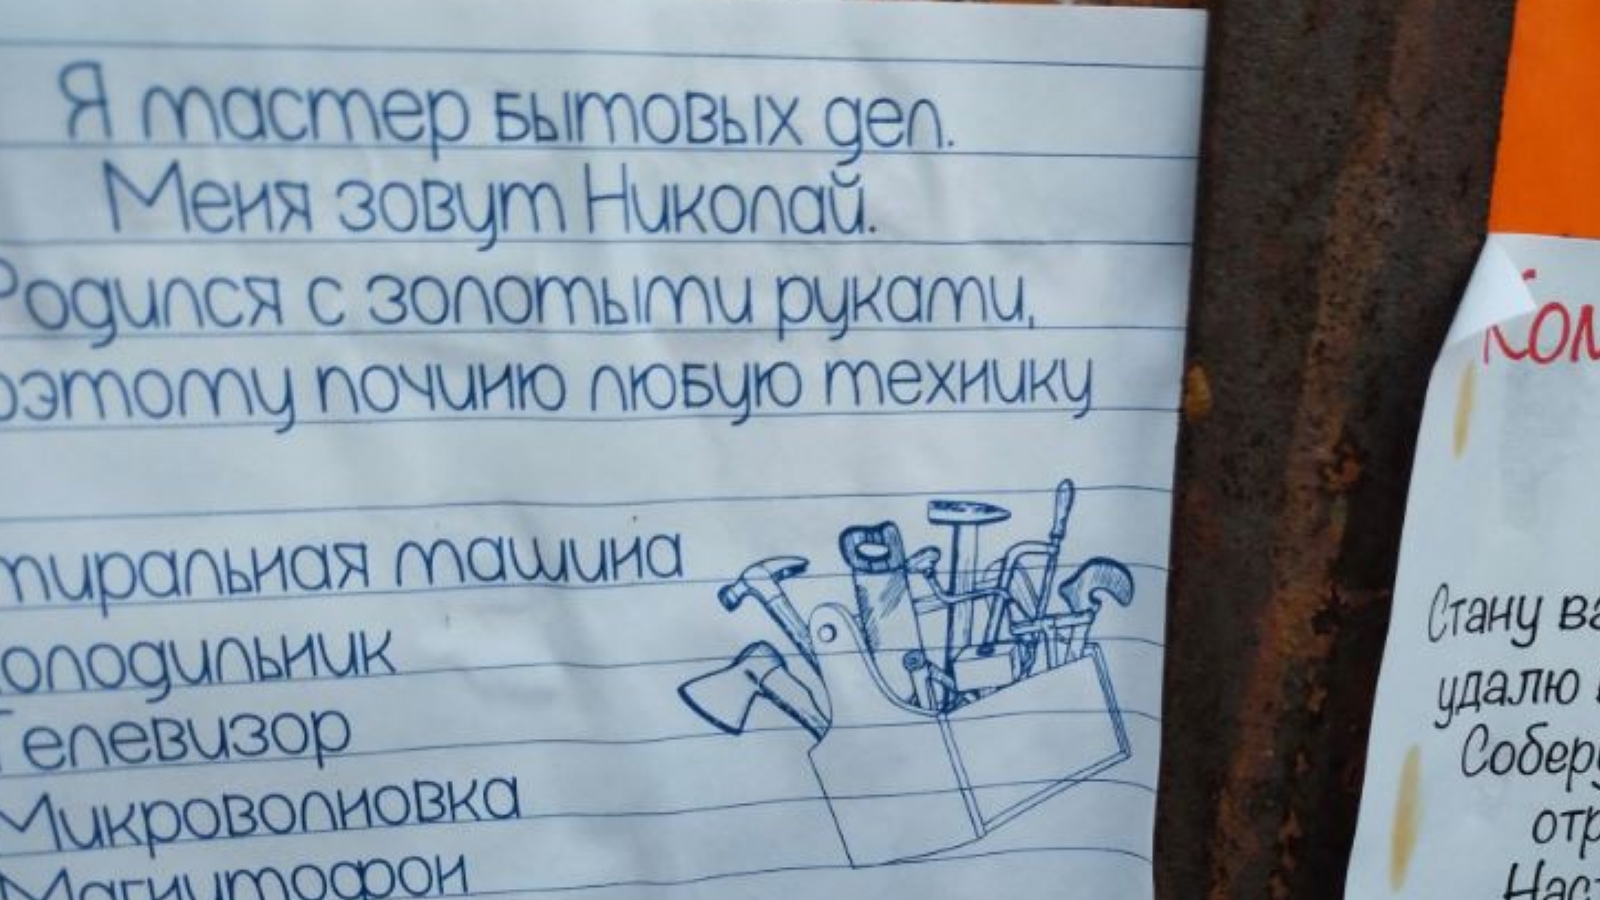 Я мастер бытовых дел.
Меня зовут Николай.
Родился с золотыми руками,
оэтому починю любую технику
тиральная машина
олодильник
Телевизор
Микроволновка
Магнитофон
Ком
Стану ва
удалю
Соберу
отр
Наст